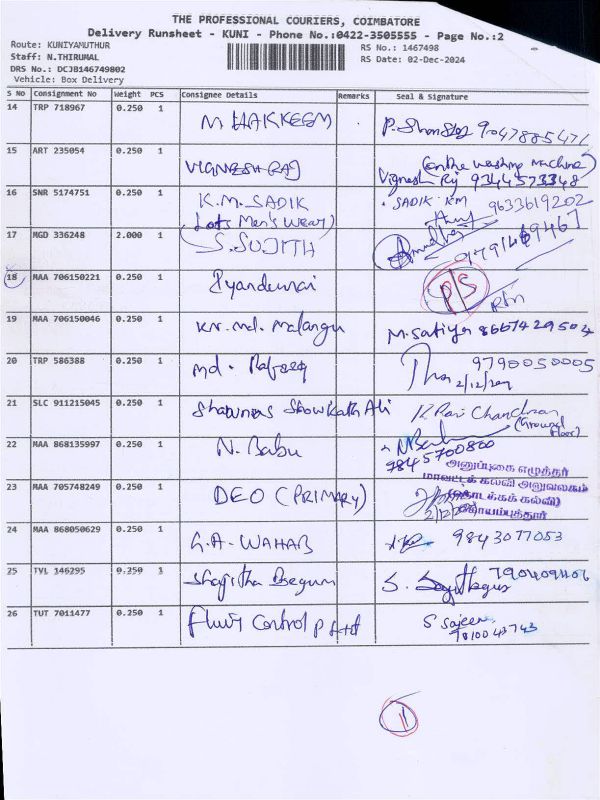 THE PROFESSIONAL COURIERS, COIMBATORE
Delivery Runsheet - KUNI - Phone No.:0422-3505555 - Page No.:2
Route: KUNIYAMUTHUR
RS No.: 1467498
Staff: N.THIRUMAL
RS Date: 02-Dec-2024
DRS No.: DCJB146749802
Vehicle: Box Delivery
S No Consignment No Weight PCS Consignee Details Remarks Seal & Signature
14 TRP 718967 0.250 1 M HAKKEEM 9047885471
15 ART 235054 0.250 1 VIGNESH RAJ (on the washing machine)
Vignesh Rj 9344573348
16 SNR 5174751 0.250 1 K.M. SADIK SADIK KM
(Lots Men's Wear) 9633619202
17 MGD 336248 2.000 1 S.SUJITH
18 MAA 706150221 0.250 1 P/S
19 MAA 706150046 0.250 1 KN. Md. Malangu M. Satiya
20 TRP 586388 0.250 1 Md. Rafeeq 9790050005
2/12/
21 SLC 911215045 0.250 1 Showkath Ali K Ravi Chandran
(Ground Floor)
22 MAA 868135997 0.250 1 N. Babu
9845700800
அனுப்புகை எழுத்தர்
மாவட்டக் கல்வி அலுவலகம்
23 MAA 705748249 0.250 1 DEO (PRIMARY) (தொடக்கக் கல்வி)
2/12/
கோயம்புத்தூர்
24 MAA 868050629 0.250 1 G.A. WAHAB 9843077053
25 TVL 146295 0.250 1 Shajitha Begum
26 TUT 7011477 0.250 1 Control P S Sajeen
7810043743
11